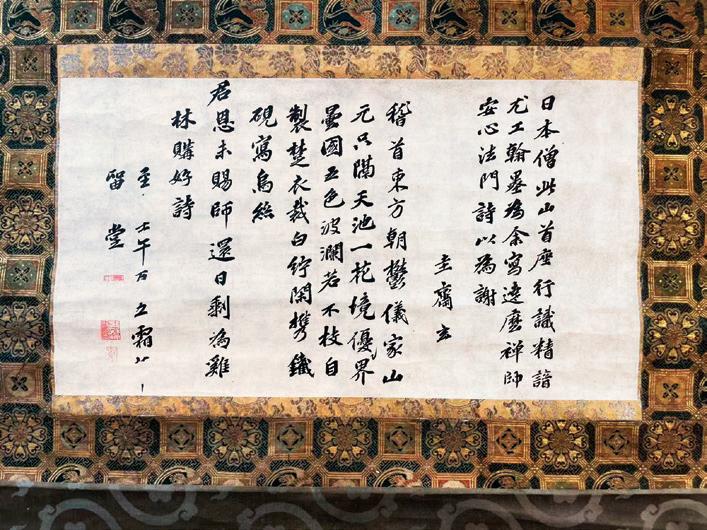 日本僧此山首座行識精諳
尤工翰墨為余寫達磨禅師
安心法門詩以為謝
圭齋玄
稽首東方朝鬱儀家山
元只隔天池一花境優界
曇國五色波瀾若不枝自
製楚衣裁白紵閑携鐵
硯寫烏絲
君恩未賜師還日剩為雞
林購好詩
壬午
堂